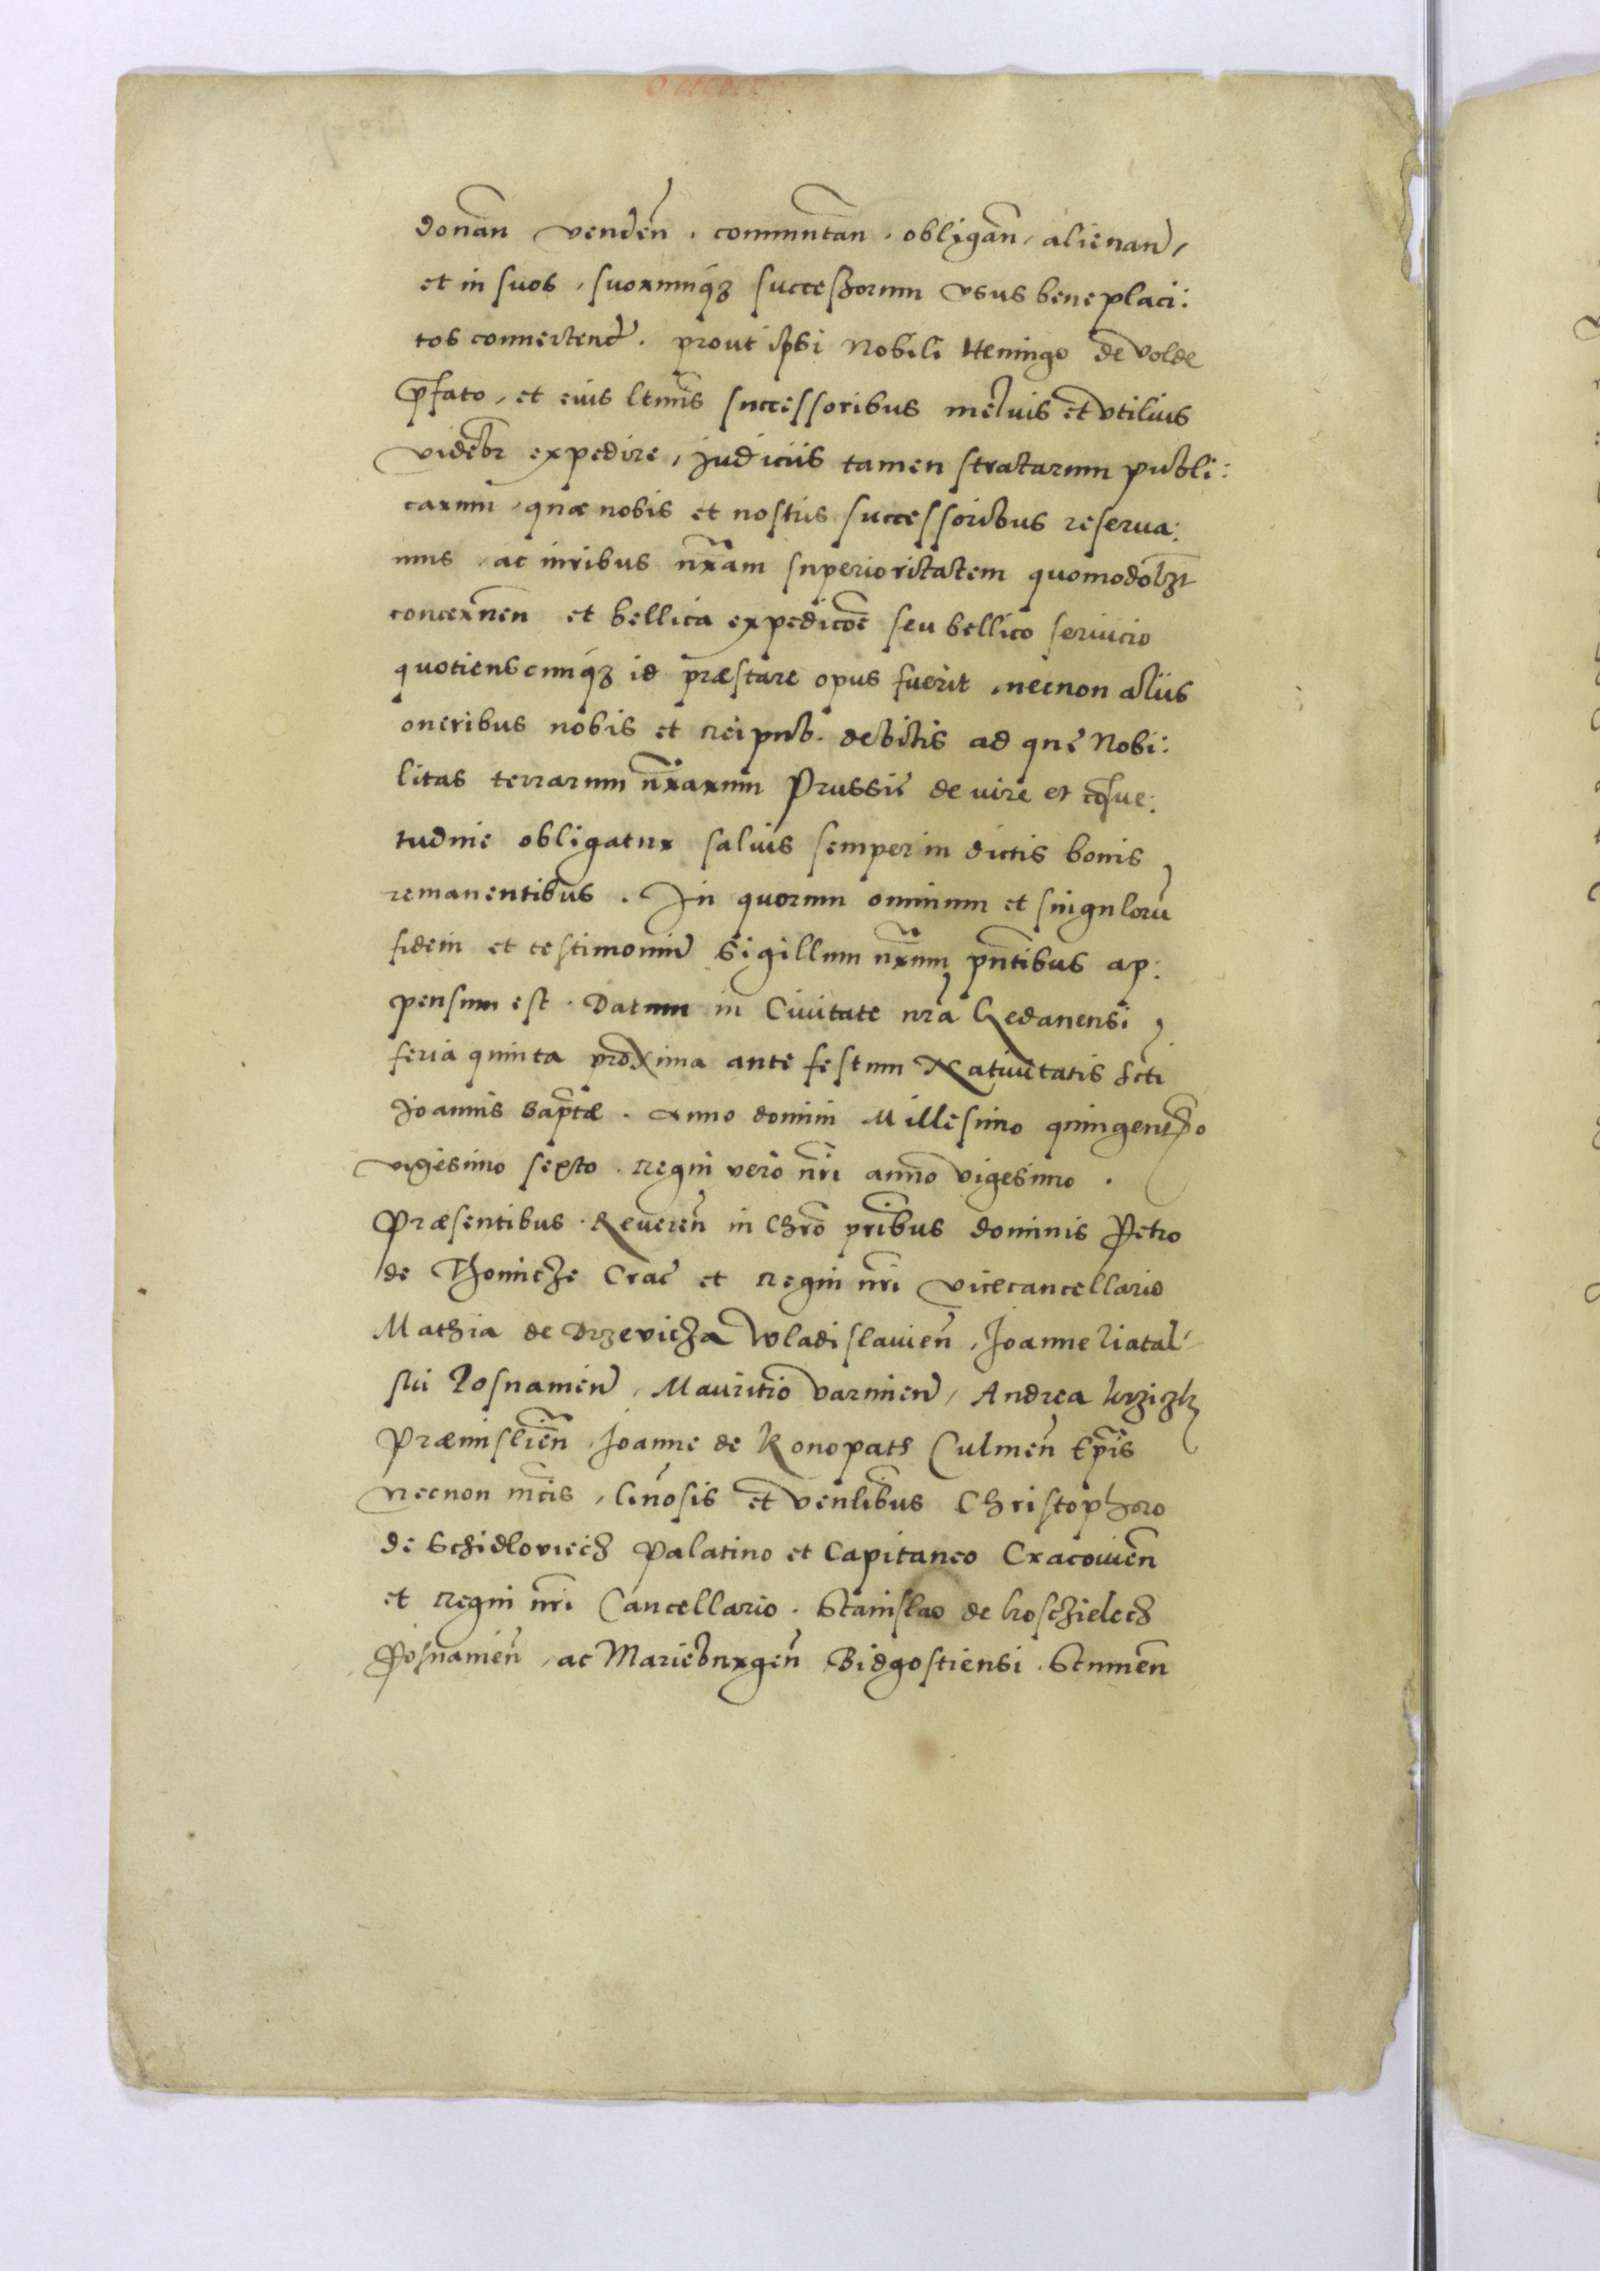 donan̄ venden̄ . commutan̄ . obligan̄ , alienan̄ ,
et in suos , suorumq̣ʒ successorum vsus beneplaci:
tos conuertend̄ . prout ipsi Nobili Heningo de Volde
p̄fato , et eius ltmis successoribus melius et vtilius
videbr̄ expedire , Judiciis tamen stratarum publi:
carum , quæ nobis et nostris successoribus reserua:
mus , ac iuribus nr̄am superioritatem quomodolʒt
concernen̄ et bellica expedicōe seu bellico seruicio
quotienscunq̣ʒ id præstare opus fuerit , necnon aliis
oneribus nobis et Reipub. debitis ad quę Nobi:
litas terrarum nr̄arum Prussię de iure et cōsue:
tudine obligatur saluis semper in dictis bonis
remanentibus . In quorum omnium et singulorū
fidem et testimoniū Sigillum nr̄um pn̄tibus ap:
pensum est . Datum in Ciuitate nr̄a Gedanensi ,
feria quinta proxima ante festum Natiuitatis scti
Joannis Bap̄tæ . Anno domini Millesimo quingentesḿo
vigesimo sexto . Regni vero nr̄i anno vigesimo .
Præsentibus . Reueren̄ in Chrō pr̄ibus dominis Petro
de Thomicze Crac̄ et Regni nr̄i Vicecancellario
Mathia de Drzevicza Wladislauien̄ , Joanne Liatal-
skii Posnanien̄ , Mauritio Varmien̄ , Andrea krziczkj
Præmislien̄ , Joanne de Konopath Culmen̄ Ep̄is
Necnon mcīs , Gn̄osis et venlībus Christophoro
de Schidloviecz Palatino et Capitaneo Cracouien̄
et Regni nr̄i Cancellario . Stanislao de koschielecz
Posnanien̄ , ac Marieburgen̄ Bidgostiensi . Stumen̄